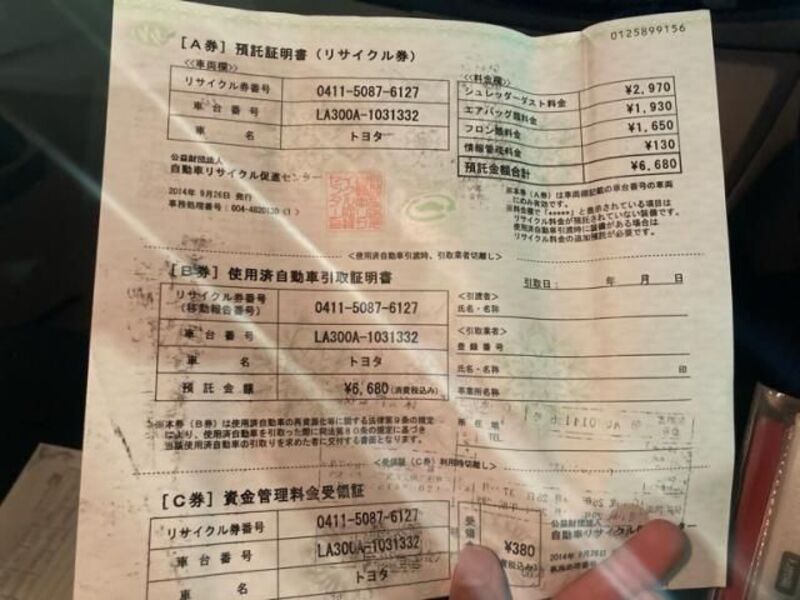 0125899156
[A券] 預託証明書 (リサイクル券)
<<車両欄>>
リサイクル券番号 0411-5087-6127
車台番号 LA300A-1031332
車名 トヨタ
<<料金欄>>
シュレッダーダスト料金 ¥2,970
エアバッグ類料金 ¥1,930
フロン類料金 ¥1,650
情報管理料金 ¥130
預託金額合計 ¥6,680
公益財団法人
自動車リサイクル促進センター
2014年 9月26日 発行
事務処理番号:004-4820130(1)
※本券(A券)は車両欄記載の車台番号の車両
にのみ有効です。
※料金欄で「*****」と表示されている項目は
リサイクル料金が預託されていない装備です。
使用済自動車引渡時に装備がある場合は
リサイクル料金の追加預託が必要です。
<使用済自動車引渡時、引取業者切離し>
[B券] 使用済自動車引取証明書
引取日: 年 月 日
リサイクル券番号
(移動報告番号) 0411-5087-6127
車台番号 LA300A-1031332
車名 トヨタ
預託金額 ¥6,680(消費税込み)
<引渡者>
氏名・名称
<引取業者>
登録番号
氏名・名称 印
事業所名称
所在地
TEL
※本券(B券)は使用済自動車の再資源化等に関する法律第9条の規定
により、使用済自動車を引取った際に同法第80条の規定に基づき
当該使用済自動車の引取りを求めた者に交付する書面となります。
<受領証(C券)利用時切離し>
[C券] 資金管理料金受領証
リサイクル券番号 0411-5087-6127
車台番号 LA300A-1031332
車名 トヨタ
¥380
公益財団法人
自動車リサイクル
2014年 9月26日
事務処理番号